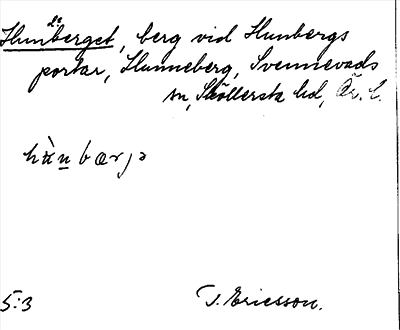 Hunberget, berg vid Hunbergs
portar, Hunneberg, Svennevads
sn, Sköllersta hd, Ör. l.
hu̇̀n bærjə
5:3 J. Ericsson.